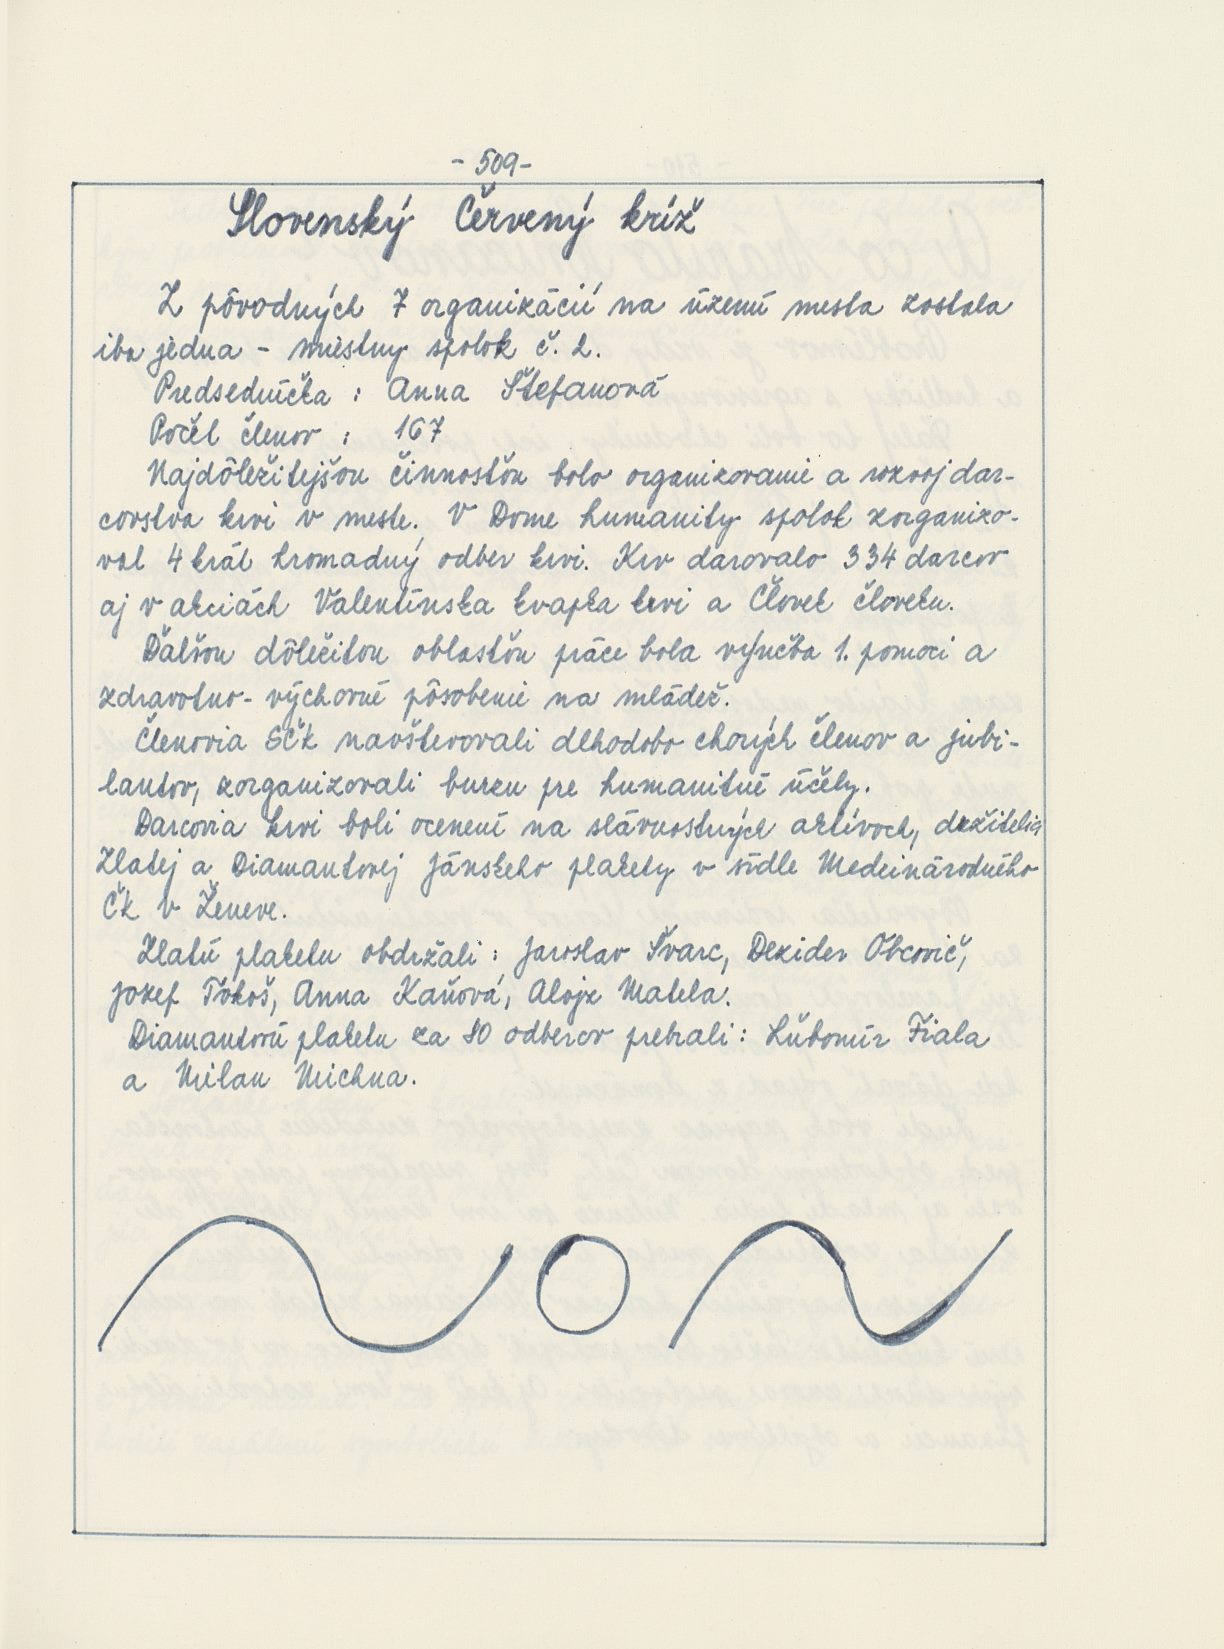 - 509 -
Slovenský Červený kríž
Z pôvodných 7 organizácií na území mesta zostala
iba jedna - miestny spolok č. 2.
Predsedníčka : Anna Štefanová
Počet členov : 167
Najdôležitejšou činnosťou bolo organizovanie a rozvoj dar-
covstva krvi v meste. V Dome humanity spolok zorganizo-
val 4 krát hromadný odber krvi. Krv darovalo 334 darcov
aj v akciách Valentínska kvapka krvi a Človek človeku.
Ďalšou dôležitou oblasťou práce bola výučba 1. pomoci a
zdravotno - výchovné pôsobenie na mládež.
Členovia SČK navštevovali dlhodobo chorých členov a jubi-
lantov, zorganizovali burzu pre humanitné účely.
Darcovia krvi boli ocenení na slávnostných aktívoch, držitelia
Zlatej a Diamantovej Jánskeho plakety v sídle Medzinárodného
ČK v Ženeve.
Zlatú plaketu obdržali : Jaroslav Švarc, Dezider Obcovič,
Jozef Tökoš, Anna Kaňová, Alojz Matela.
Diamantovú plaketu za 80 odberov prebrali : Ľubomír Fiala
a Milan Michna.